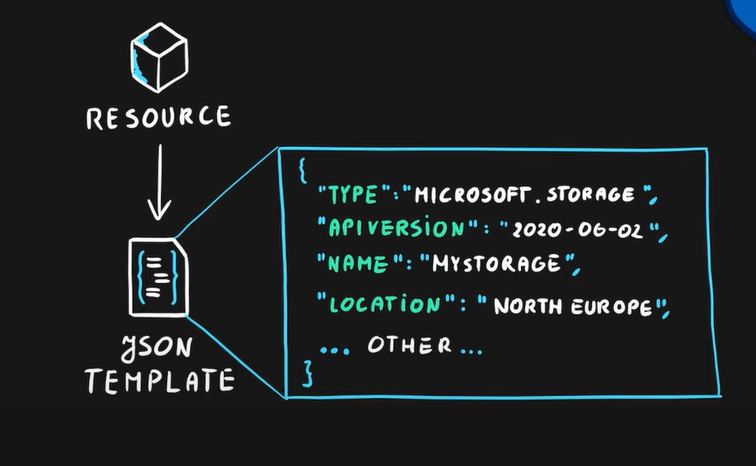 RESOURCE
JSON
TEMPLATE
{
"TYPE":"MICROSOFT.STORAGE",
"APIVERSION": "2020-06-02",
"NAME":"MYSTORAGE",
"LOCATION": "NORTH EUROPE",
... OTHER ...
}